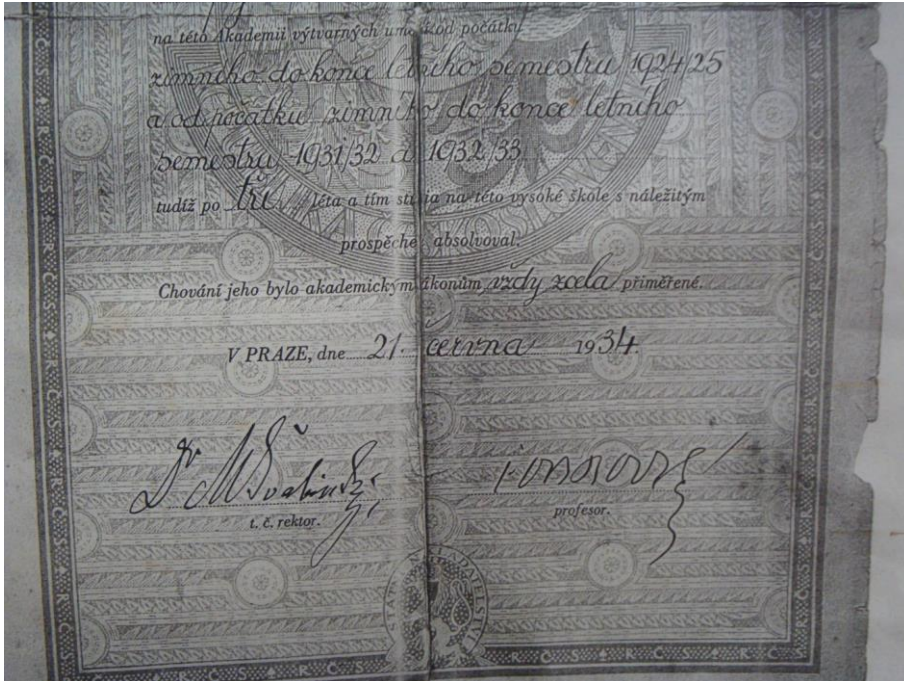 na této Akademii výtvarných umě od počátku
zimního do konce letního semestru 1924/25
a od počátku zimního do konce letního
semestru 1931/32 a 1932/33
tudíž po tři léta a tím studia na této vysoké škole s náležitým
prospěche absolvoval.
Chování jeho bylo akademickým ákonům vždy zcela přiměřené.
V PRAZE, dne 21. června 1934.
Dr MŠvabinský
t. č. rektor. profesor.
STÁTNÍ NAKLADATELSTVÍ
R·Č·S R·Č·S R·Č·S R·Č·S